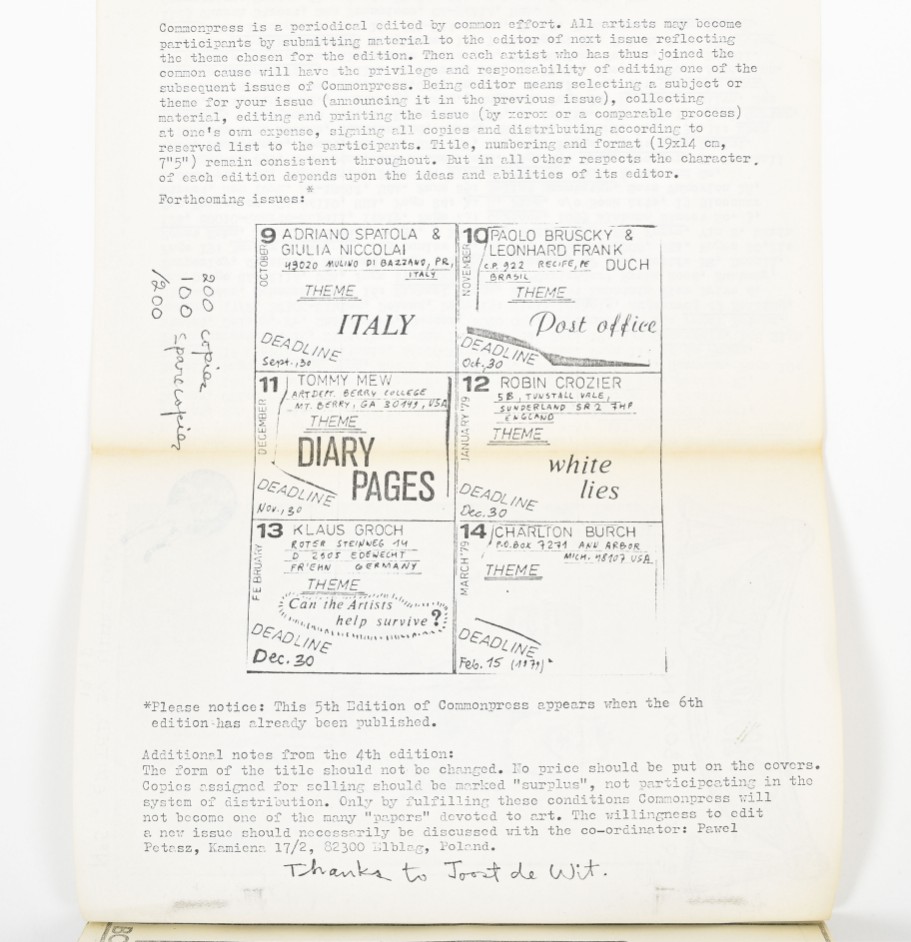 Commonpress is a periodical edited by common effort. All artists may become
participants by submitting material to the editor of next issue reflecting
the theme chosen for the edition. Then each artist who has thus joined the
common cause will have the privilege and responsability of editing one of the
subsequent issues of Commonpress. Being editor means selecting a subject or
theme for your issue (announcing it in the previous issue), collecting
material, editing and printing the issue (by xerox or a comparable process)
at one's own expense, signing all copies and distributing according to
reserved list to the participants. Title, numbering and format (19x14 cm,
7"5") remain consistent throughout. But in all other respects the character
of each edition depends upon the ideas and abilities of its editor.
Forthcoming issues:*
200 copies
100 sparecopies
/200
9 ADRIANO SPATOLA &
GIULIA NICCOLAI
43020 MULINO DI BAZZANO, PR,
ITALY
OCTOBER
THEME
ITALY
DEADLINE
Sept., 30
10 PAOLO BRUSCKY &
LEONHARD FRANK
DUCH
C.P. 922 RECIFE, PE
BRASIL
NOVEMBER
THEME
Post office
DEADLINE
Oct, 30
11 TOMMY MEW
ART DEPT. BERRY COLLEGE
MT. BERRY, GA 30149, USA
DECEMBER
THEME
DIARY
PAGES
DEADLINE
Nov., 30
12 ROBIN CROZIER
5B, TUNSTALL VALE,
SUNDERLAND SR2 7HP
ENGLAND
JANUARY '79
THEME
white
lies
DEADLINE
Dec. 30
13 KLAUS GROCH
ROTER STEINWEG 14
D 2905 EDEWECHT
FR'EHN GERMANY
FEBRUARY
THEME
Can the Artists
help survive?
DEADLINE
Dec. 30
14 CHARLTON BURCH
P.O. BOX 7271 ANN ARBOR
MICH. 48107 USA
MARCH '79
THEME
DEADLINE
Feb. 15 (1979)
*Please notice: This 5th Edition of Commonpress appears when the 6th
edition has already been published.
Additional notes from the 4th edition:
The form of the title should not be changed. No price should be put on the covers.
Copies assigned for selling should be marked "surplus", not participcating in the
system of distribution. Only by fulfilling these conditions Commonpress will
not become one of the many "papers" devoted to art. The willingness to edit
a new issue should necessarily be discussed with the co-ordinator: Pawel
Petasz, Kamiena 17/2, 82300 Elblag, Poland.
Thanks to Joost de Wit.